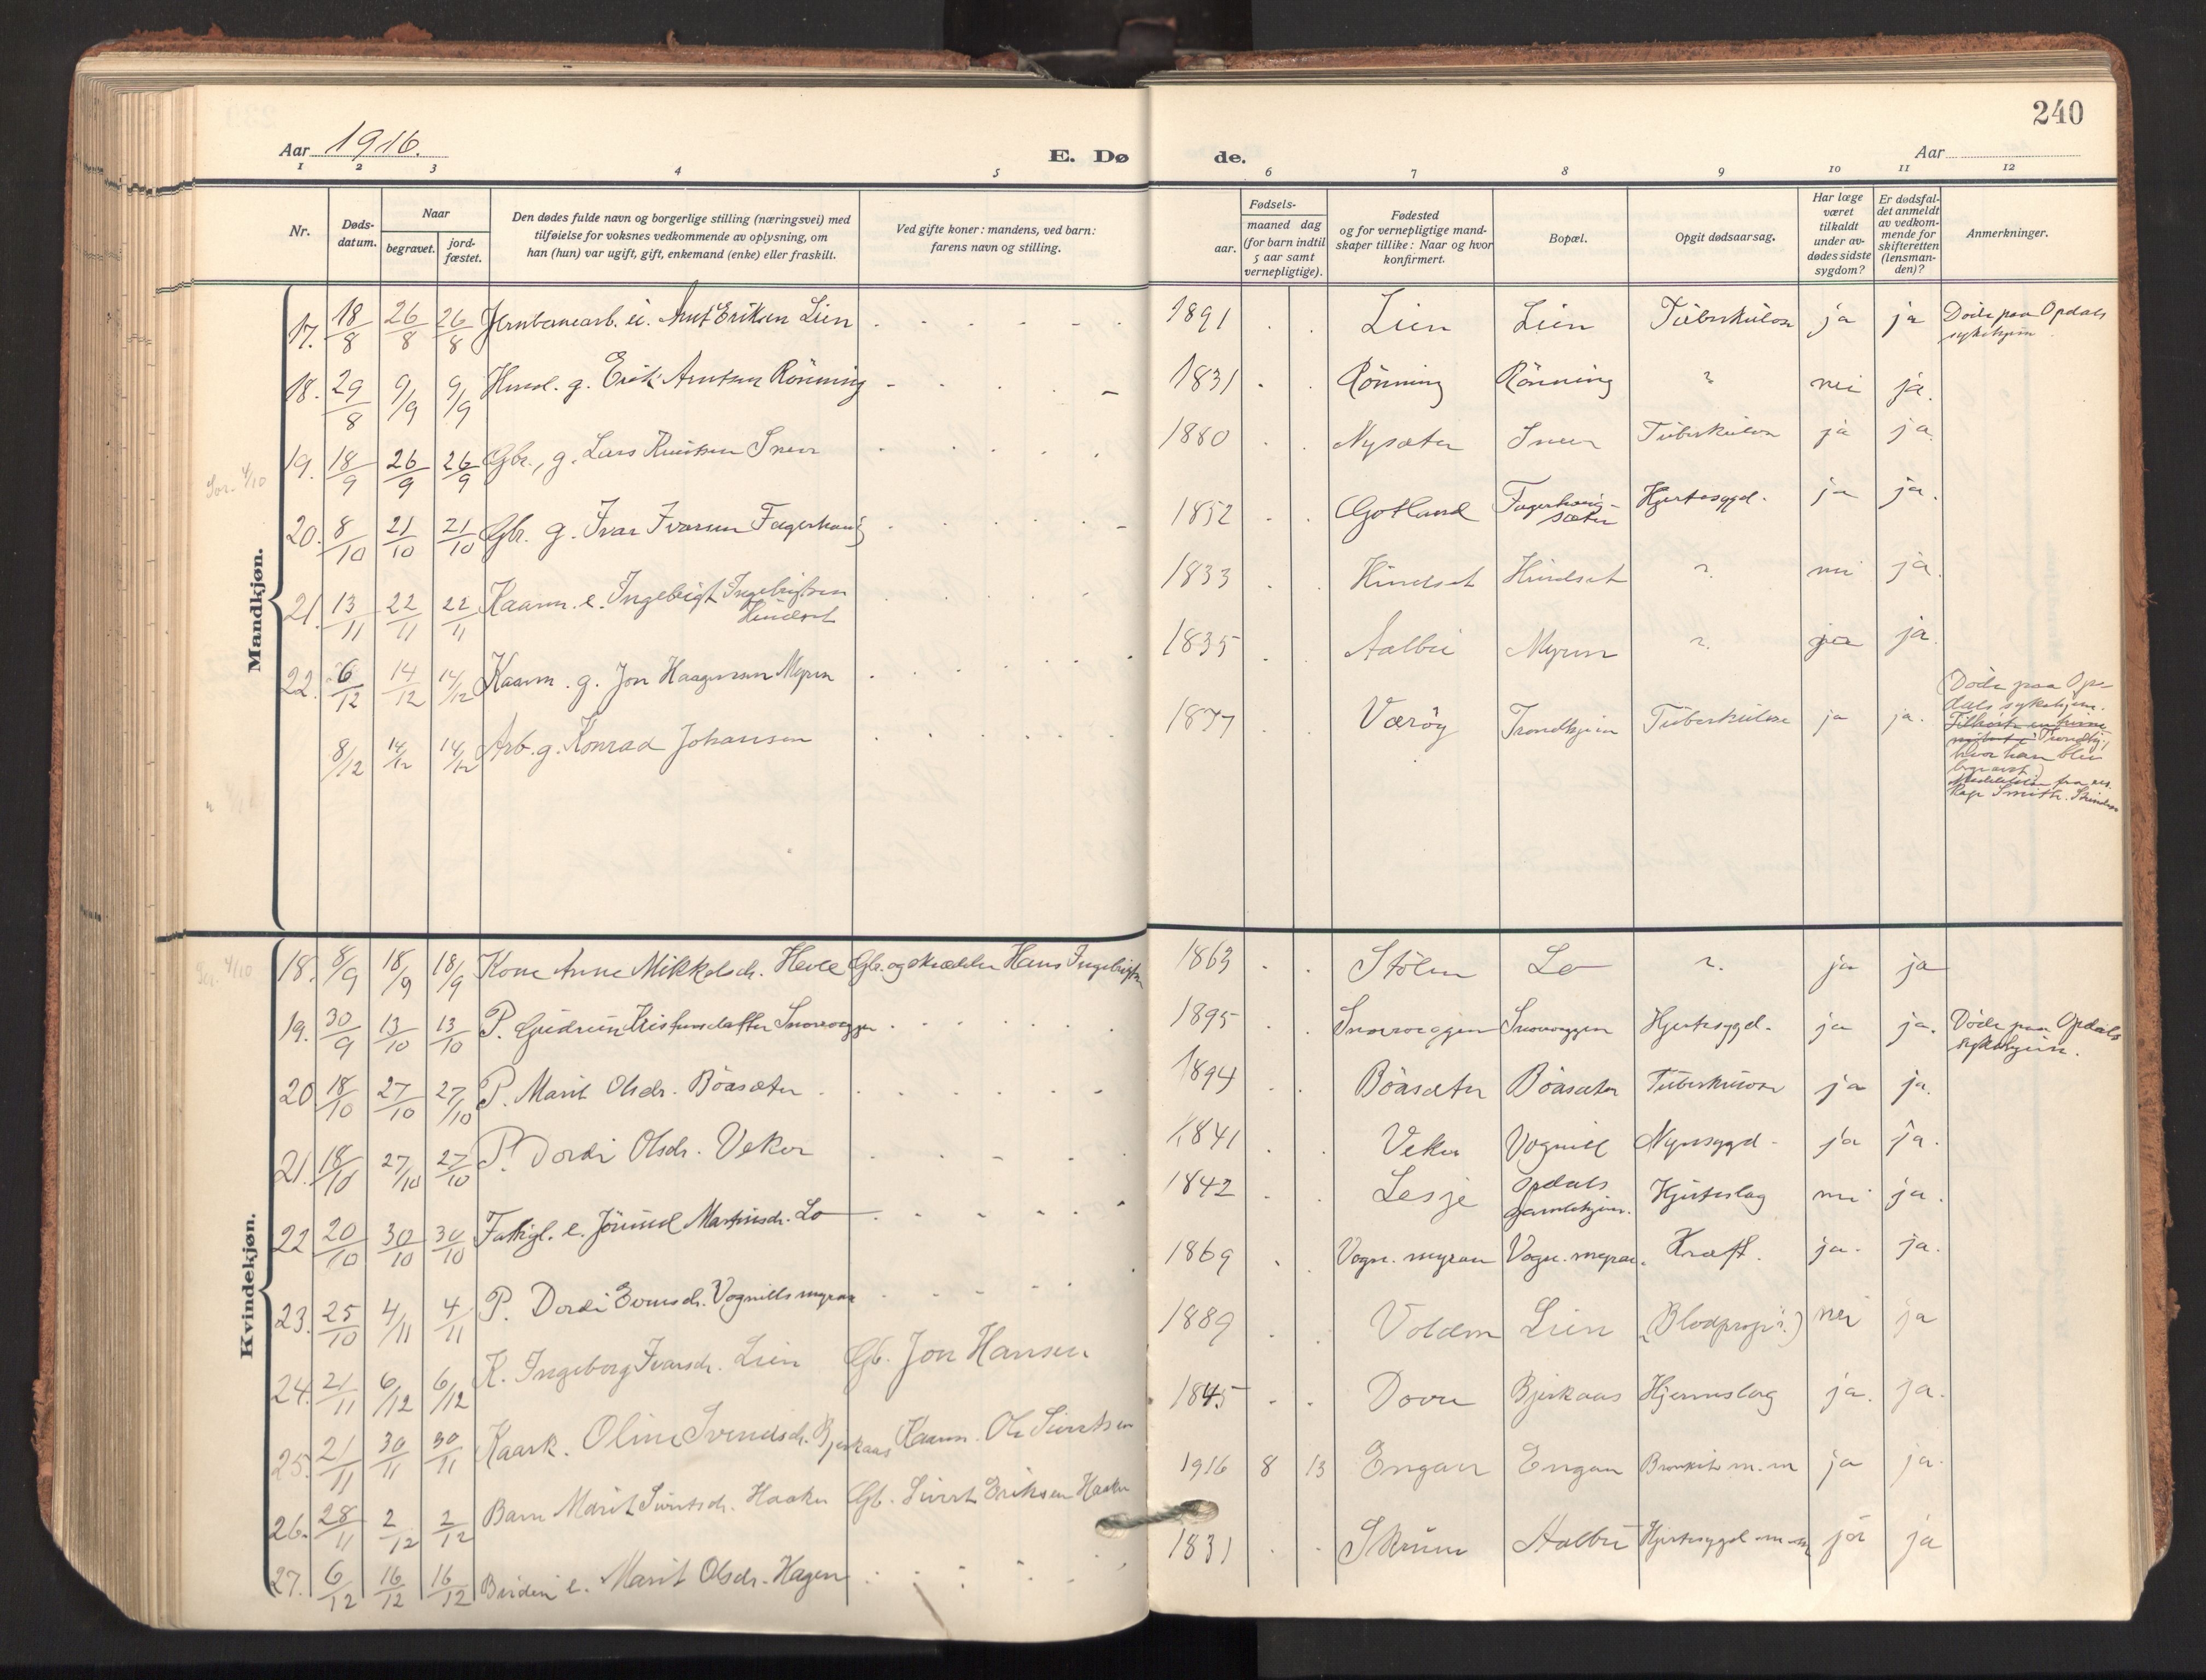 240
Aar 1916.
E. Dø de.
Aar
1 2 3 4 5 6 7 8 9 10 11 12
Nr.
Døds-
datum.
Naar
begravet.
jord-
fæstet.
Den dødes fulde navn og borgerlige stilling (næringsvei) med
tilføielse for voksnes vedkommende av oplysning, om
han (hun) var ugift, gift, enkemand (enke) eller fraskilt.
Ved gifte koner: mandens, ved barn:
farens navn og stilling.
Fødsels-
aar.
maaned dag
(for barn indtil
5 aar samt
vernepligtige).
Fødested
og for vernepligtige mand-
skaper tillike: Naar og hvor
konfirmert.
Bopæl.
Opgit dødsaarsag.
Har læge
været
tilkaldt
under av-
dødes sidste
sygdom?
Er dødsfal-
det anmeldt
av vedkom-
mende for
skifteretten
(lensman-
den)?
Anmerkninger.
Mandkjøn.
17. 18/8 26/8 26/8 Jernbanearb. u. Arnt Eriksen Lien 1891 Lien Lien Tuberkulose ja ja Døde paa Opdals
sykehjem
18. 29/8 9/9 9/9 g. Erik Arntsen Rönning 1831 Rönning Rönning ? nei ja.
19. 18/9 26/9 26/9 Gbr., g. Lars Knutsen Snen 1880 Nysæter Snen Tuberkulose ja ja.
4/10
20. 8/10 21/10 21/10 Gbr. g. Ivar Ivarsen Fagerhaug 1852 Gotland Fagerhaug-
sæter Hjertesygd. ja ja.
21. 13/11 22/11 22/11 Kaarm. e. Ingebrigt Ingebrigtsen
Hindset 1833 Hindset Hindset ?. nei ja.
22. 6/12 14/12 14/12 Kaarm. g. Jon Haagensen Myren 1835 Aalbu Myren ?. ja ja.
8/12 14/12 14/12 Arb. g. Konrad Johansen 1877 Værøy Trondhjem Tuberkulose ja ja. (Døde paa Op-
dals sykehjem.
hvor han blev
begravet)
fra res.
Kap. Smith.
Kvindekjøn.
4/10
18. 8/9 18/9 18/9 Kone Anne Mikkelsdr. Hevle Gbr. og skrædder Hans Ingebrigtsen 1863 Stölen Lo ?. ja ja
19. 30/9 13/10 13/10 P. Gudrun Kristensdatter Snoreoggen 1895 Snoreoggen Snoreoggen Hjertesygd. ja ja. Døde paa Opdals
sykehjem.
20. 18/10 27/10 27/10 P. Marit Olsdr. Böasæter 1894 Böasæter Böasæter Tuberkulose ja ja.
21. 18/10 27/10 27/10 P. Dordi Olsdr. Veker 1841 Veker Vognill Nyresygd. ja ja.
22. 20/10 30/10 30/10 Fattigl. e. Jörund Martinsdr. Lo 1842 Lesje Opdals
gamlehjem. Hjerteslag nei ja.
23. 25/10 4/11 4/11 P. Dordi Evensdr. Vognillsmyran 1869 Vogn. myran Vogn. myran. Kræft. ja. ja.
24. 21/11 6/12 6/12 K. Ingeborg Ivarsdr. Lien Gb. Jon Hansen 1889 Volden Lien (Blodprop?.) nei ja
25. 21/11 30/11 30/11 Kaark. Oline Svendsdr. Bjerkaas Kaarm. Ole Sivertsen 1845 Dovre Bjerkaas Hjerneslag ja. ja.
26. 28/11 2/12 2/12 Barn Marit Sivertsdr. Haaker Gb. Sivert Eriksen Haaker 1916 8 13 Engan Engan Bronkit m. m ja ja.
27. 6/12 16/12 16/12 e. Marit Olsdr. Hagen 1831 Skrum Aalbu Hjertesygd. m. m ja ja